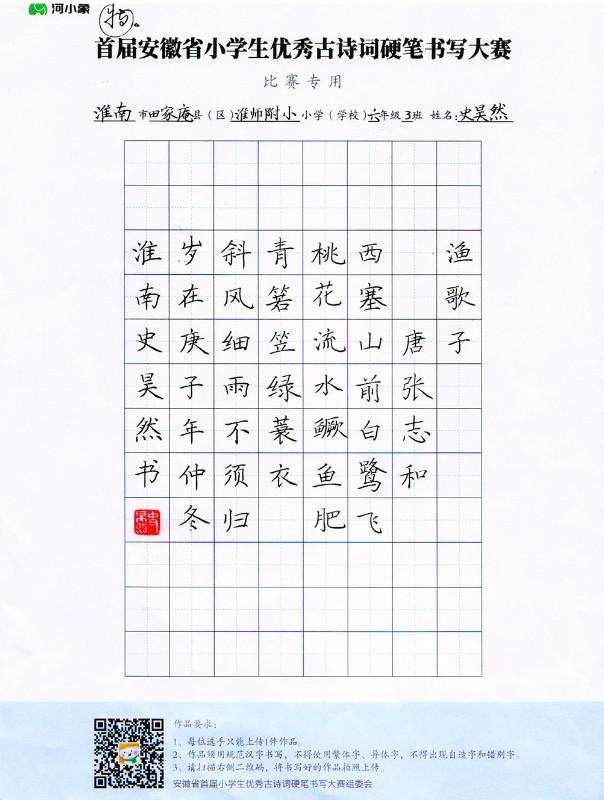 河小象
特。
首届安徽省小学生优秀古诗词硬笔书写大赛
比赛专用
淮南市田家庵县（区）淮师附小小学（学校）六年级3班 姓名：史昊然
渔歌子
唐张志和
西塞山前白鹭飞
桃花流水鳜鱼肥
青箬笠绿蓑衣
斜风细雨不须归
岁在庚子年仲冬
淮南史昊然书
作品要求：
1、每位选手只能上传1件作品。
2、作品须用规范汉字书写，不得使用繁体字、异体字，不得出现自造字和错别字。
3、请扫描右侧二维码，将书写好的作品拍照上传。
安徽省首届小学生优秀古诗词硬笔书写大赛组委会